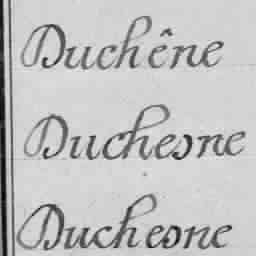 Duchêne
Duchesne
Duchesne